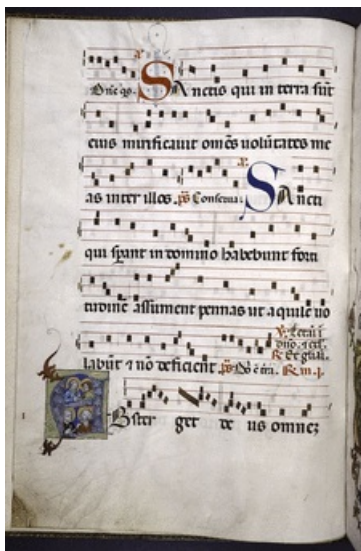 SAnctis qui in terra sūt
eius mirificavit omēs volūtates me
as inter illos. ps Conserva: SAncti
qui sperant in domino habebunt forti
tudinē assument pennas ut aquile vo
labūt & nō deficient. ps
Bster get de us omnez